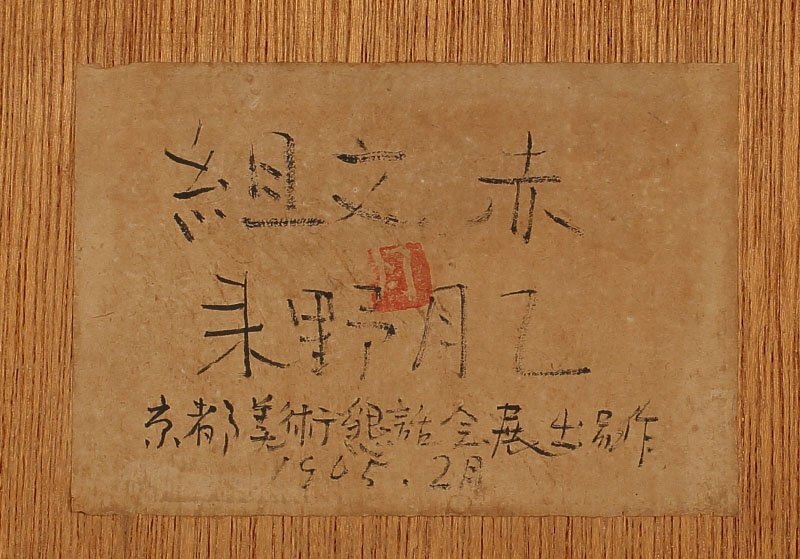 組文 赤
来野月乙
京都美術懇話会展出品作
1965.2月